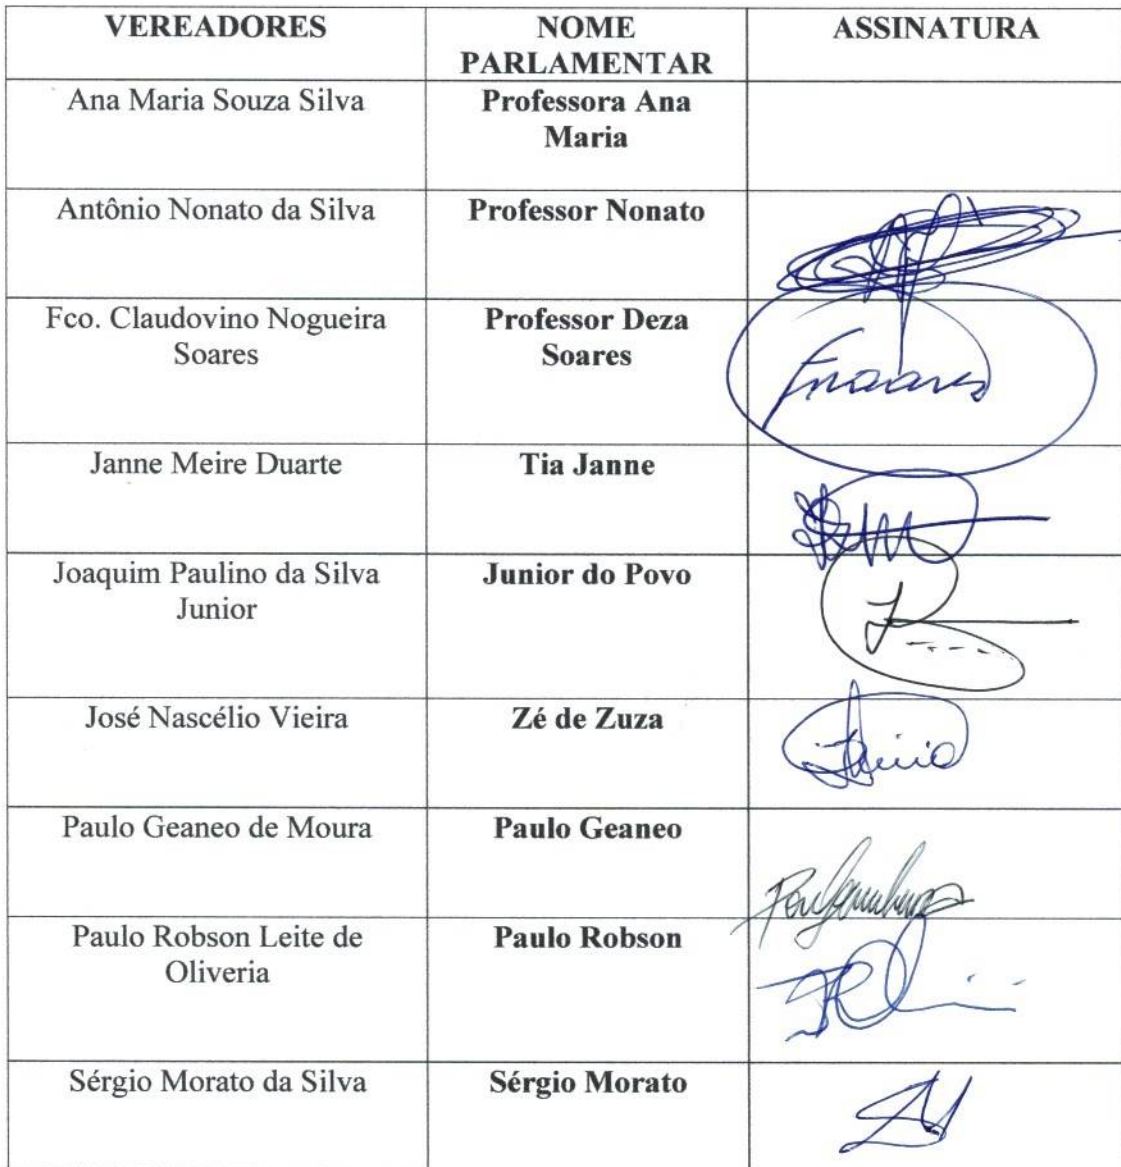 VEREADORES NOME PARLAMENTAR ASSINATURA
Ana Maria Souza Silva Professora Ana
Maria
Antônio Nonato da Silva Professor Nonato
Fco. Claudovino Nogueira Professor Deza
Soares Soares
Janne Meire Duarte Tia Janne
Joaquim Paulino da Silva Junior do Povo
Junior
José Nascélio Vieira Zé de Zuza
Paulo Geaneo de Moura Paulo Geaneo
Paulo Robson Leite de Paulo Robson
Oliveria
Sérgio Morato da Silva Sérgio Morato